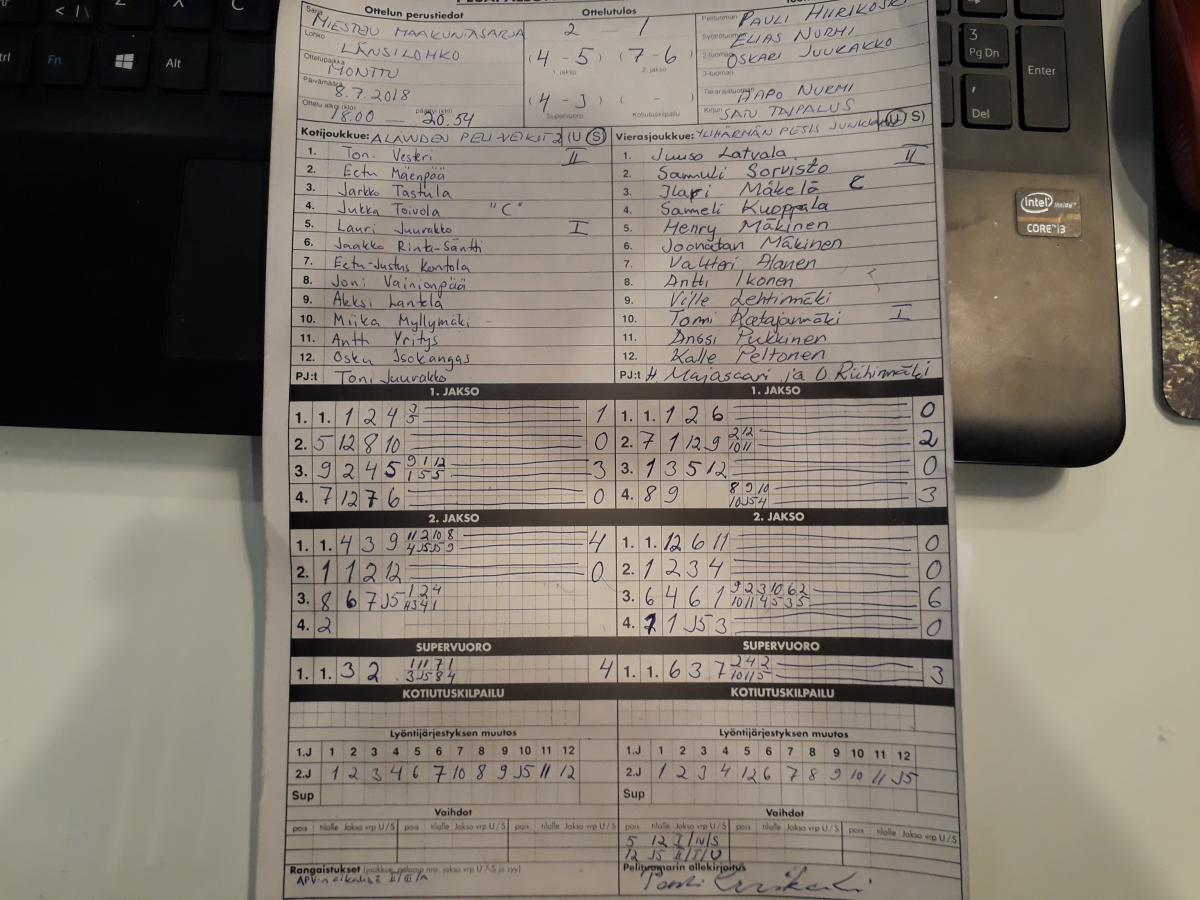 Ctrl
Fn
Alt
3
Pg Dn
Enter
,
Del
intel inside™
CORE i3
Ottelun perustiedot
Ottelutulos
Sarja MIESTEN MAAKUNTASARJA
2 - 1
Pelituomari PAULI
Lohko LÄNSILOHKO
(4 - 5) (7 - 6)
1. jakso 2. jakso
Syöttötuomari ELIAS NURMI
2-tuomari OSKARI JUUKAKKO
Ottelupaikka MONTTU
3-tuomari
Päivämäärä 8.7.2018
(4 - 3) ( - )
Supervuoro Kotiutuskilpailu
Takarajatuomari AAPO NURMI
Ottelu alkoi (klo) 18.00 — päättyi (klo) 20.54
Kirjuri SATU TAIPALUS
Kotijoukkue: ALAVUDEN PELI-VEIKOT 2 (U S)
Vierasjoukkue: YLIHÄRMÄN PESIS JUNKKARIT (U S)
1. Toni Vesteri II
2. Eetu Mäenpää
3. Jarkko Tastula
4. Jukka Toivola "C"
5. Lauri Juurakko I
6. Jaakko Rinta-Säntti
7. Eetu-Justus Kontola
8. Joni Vainionpää
9. Aleksi Lantela
10. Miika Myllymäki -
11. Antti Yritys
12. Osku Isokangas
PJ:t Toni Juurakko
1. Juuso Latvala II
2. Samuli Sorvisto
3. Ilari Mäkelä C
4. Sameli Kuoppala
5. Henry Mäkinen
6. Joonatan Mäkinen
7. Valtteri Alanen
8. Antti Ikonen
9. Ville Lehtimäki
10. Tommi Ratajanmäki I
11. Anssi Pukkinen
12. Kalle Peltonen
PJ:t H. Majasaari ja O. Riihimäki
1. JAKSO
1. JAKSO
1. 1. 1 2 4 3 5 1
1. 1. 1 2 6 0
2. 5 12 8 10 0
2. 7 1 12 9 2 12 10 11 2
3. 9 2 4 5 9 1 12 1 5 5 3
3. 1 3 5 12 0
4. 7 12 7 6 0
4. 8 9 8 9 10 10 J5 4 3
2. JAKSO
2. JAKSO
1. 1. 4 3 9 11 2 10 8 4 J5 J5 9 4
1. 1. 12 6 11 0
2. 1 1 2 12 0
2. 1 2 3 4 0
3. 8 6 7 J5 1 2 4 4 3 4 1
3. 6 4 6 1 9 2 3 10 6 2 10 11 4 5 3 5 6
4. 2
4. 7 1 J5 3 0
SUPERVUORO
SUPERVUORO
1. 1. 3 2 1 11 7 1 3 J5 8 4 4
1. 1. 6 3 7 2 4 2 10 11 5 3
KOTIUTUSKILPAILU
KOTIUTUSKILPAILU
Lyöntijärjestyksen muutos
Lyöntijärjestyksen muutos
1.J 1 2 3 4 5 6 7 8 9 10 11 12
1.J 1 2 3 4 5 6 7 8 9 10 11 12
2.J 1 2 3 4 6 7 10 8 9 J5 11 12
2.J 1 2 3 4 12 6 7 8 9 10 11 J5
Sup
Sup
Vaihdot
Vaihdot
pois tilalle Jakso vrp U/S pois tilalle Jakso vrp U/S pois tilalle Jakso vrp U/S
pois tilalle Jakso vrp U/S pois tilalle Jakso vrp U/S pois tilalle Jakso vrp U/S
5 12 I/IV/S
12 J5 II/I/U
Rangaistukset (joukkue, pelaajan nro, jakso vrp U/S ja syy)
Pelituomarin allekirjoitus
APV:n aikalisä II/III/A